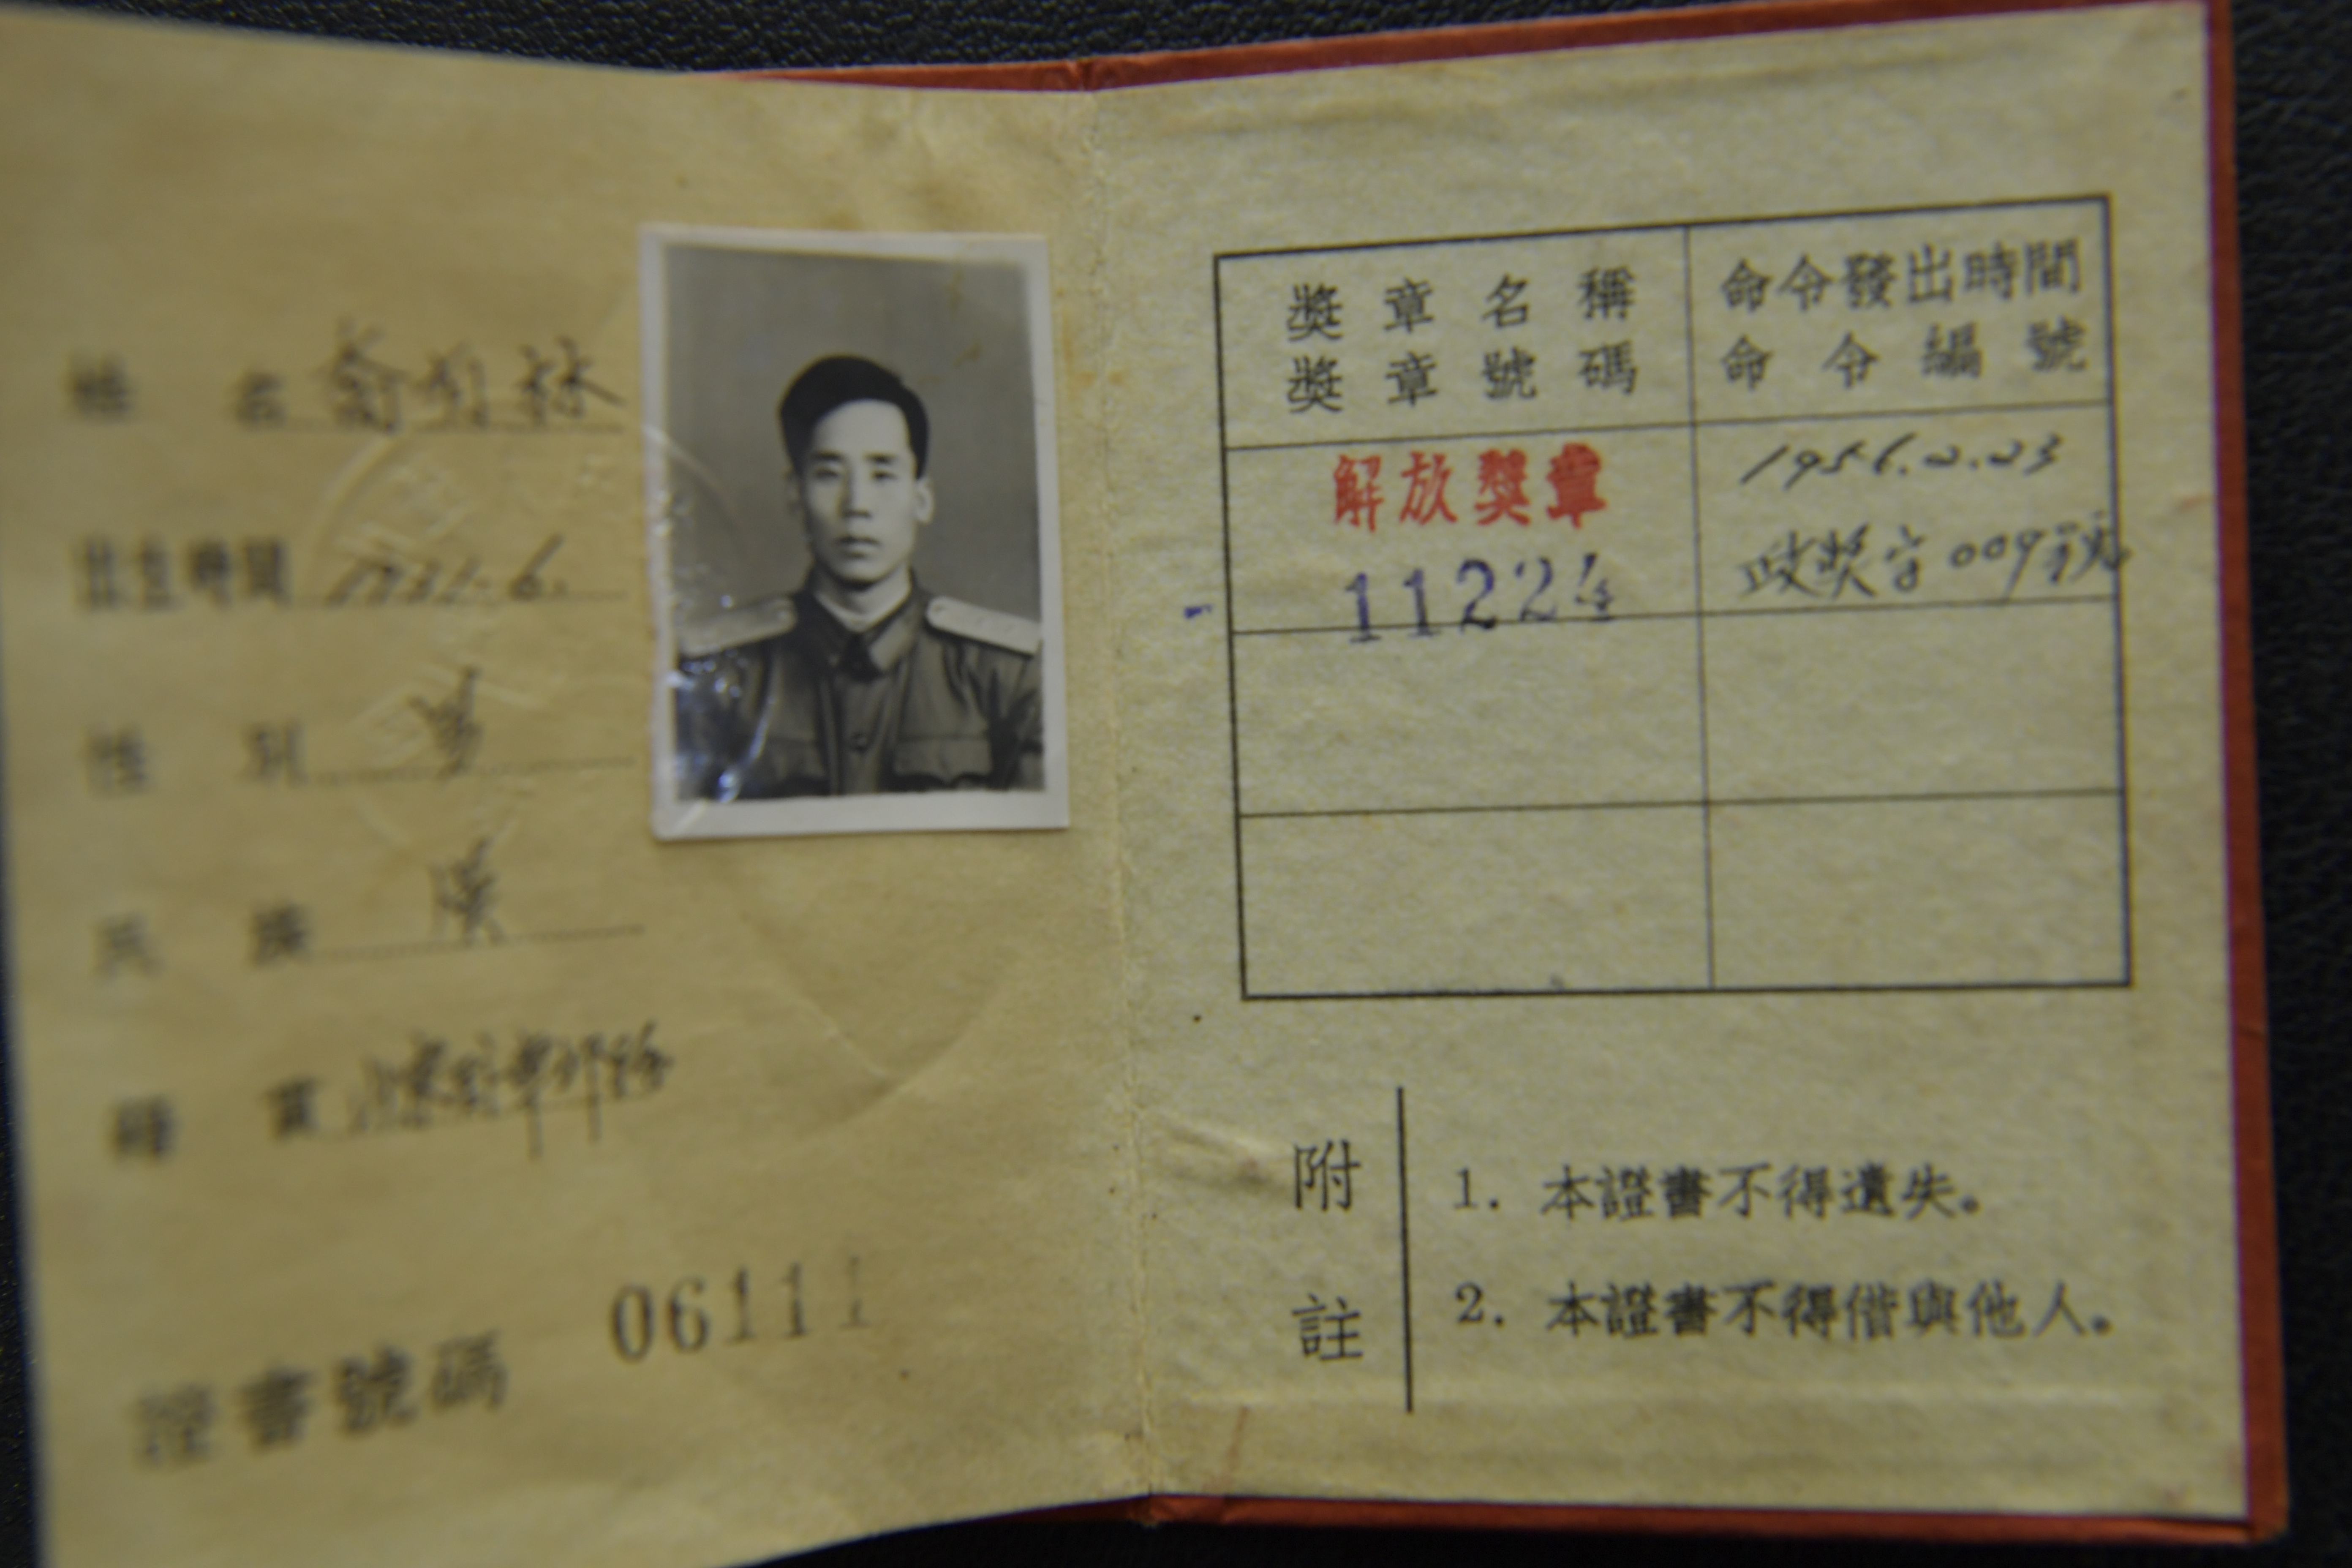 姓 名
出生時間
性 別 男
民 族 漢
籍 貫
證書號碼 06111
獎章名稱 命令發出時間
獎章號碼 命令編號
解放獎章 1956.2.23
11224 政獎字009號
附註
1. 本證書不得遺失。
2. 本證書不得借與他人。